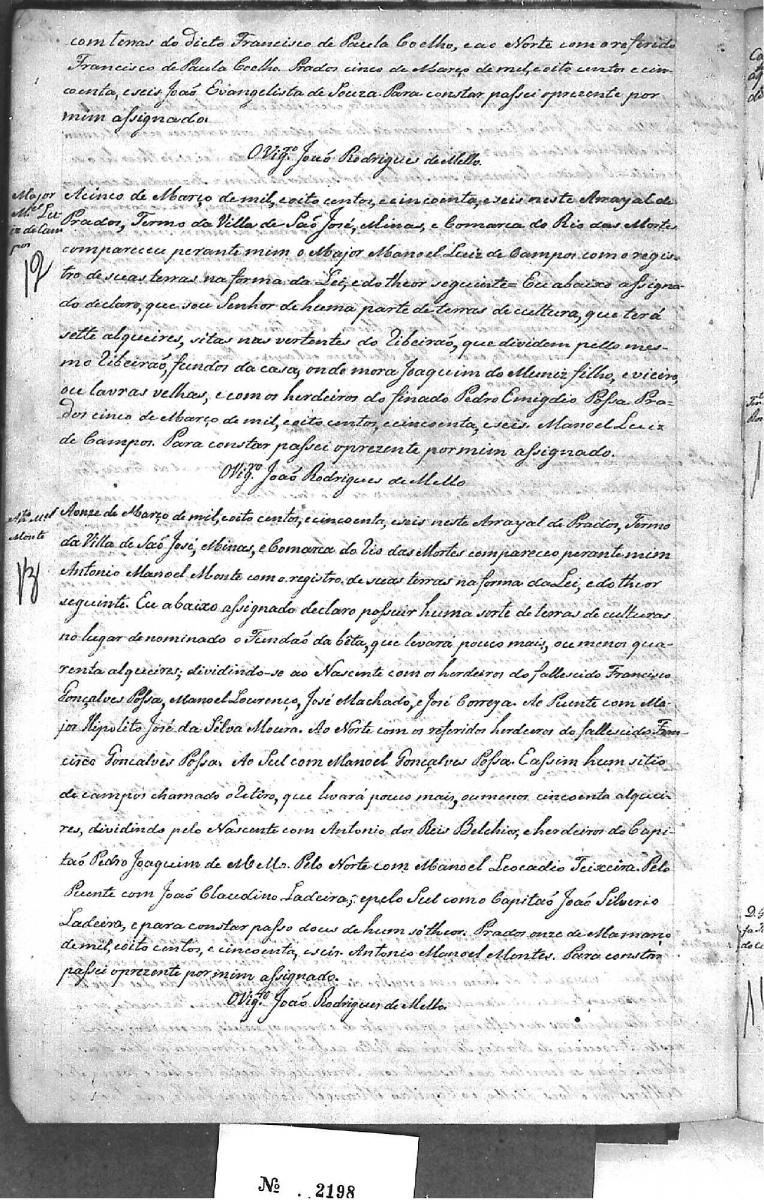 com terras do dicto Francisco de Paula Coelho, e ao Norte com o referido
Francisco de Paula Coelho. Prados cinco de Março de mil, e oito centos e cin-
coenta, e seis João Evangelista de Souza. Para constar passei o prezente por
mim assignado.
O Vigr.º João Rodrigues de Mello.
Major
M.el Lu-
iz de Cam
pos
12
A cinco de Março de mil, e oito centos, e cincoenta, e seis neste Arrayal de
Prados, Termo da Villa de São José, Minas, e Comarca do Rio das Mortes
compareceu perante mim o Major Manoel Luiz de Campos com o regis-
tro de suas terras na forma da Lei, e do theor seguinte = Eu abaixo assigna-
do declaro, que sou Senhor de huma parte de terras de cultura, que terá
sette alqueires, sitas nas vertentes do Ribeirão, que dividem pello mes-
mo Ribeirão, fundos da casa, onde mora Joaquim do Muniz filho, e vieiro,
ou lavras velhas, e com os herdeiros do finado Pedro Emigdio Possa. Pra-
dos cinco de Março de mil, e oito centos, e cincoenta, e seis. Manoel Luiz
de Campos. Para constar passei o prezente por mim assignado.
O Vigr.º João Rodrigues de Mello
Ant.º M.el
Monte
13
A onze de Março de mil, e oito centos, e cincoenta, e seis neste Arrayal de Prados, Termo
da Villa de São José, Minas, e Comarca do Rio das Mortes compareceo perante mim
Antonio Manoel Monte com o registro de suas terras na forma da Lei, e do theor
seguinte. Eu abaixo assignado declaro possuir huma sorte de terras de culturas
no lugar denominado o Fundão da béta, que levará pouco mais, ou menos qua-
renta alqueires; dividindo-se ao Nascente com os herdeiros do fallescido Francisco
Gonçalves Possa, Manoel Lourenço, José Machado, e José Correya. Ao Puente com Ma-
jor Hipolito José da Silva Moura. Ao Norte com os referidos herdeiros do fallescido Fran-
cisco Goncalves Possa. Ao Sul com Manoel Gonçalves Possa. E assim hum sitio
de campos chamado o Retiro, que levará pouco mais, ou menos cincoenta alquei-
res, dividindo pelo Nascente com Antonio dos Reis Belchior, e herdeiros do Capi-
tão Pedro Joaquim de Mello. Pelo Norte com Manoel Leocadio Teixeira. Pelo
Puente com João Claudino Ladeira; e pelo Sul com o Capitão João Silverio
Ladeira, e para constar passo dous de hum só theor. Prados onze de Março
de mil, e oito centos, e cincoenta, e seis. Antonio Manoel Montes. Para constar
passei o prezente por mim assignado.
O Vigr.º João Rodrigues de Mello.
Nº 2198